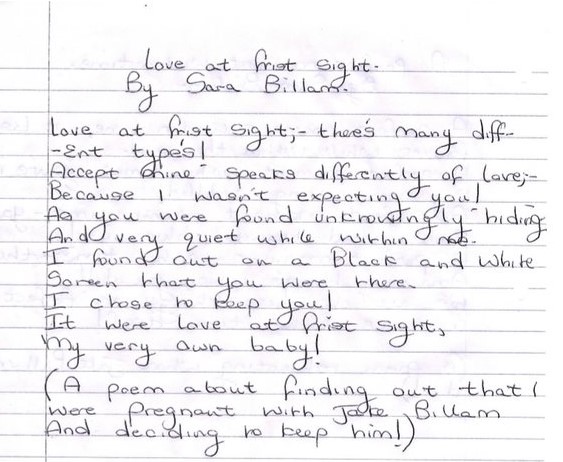 Love at frist Sight.
By Sara Billam.
Love at frist Sight;- there's many diff-
-Ent type's!
Accept mine speaks differently of Love;-
Because I wasn't expecting you!
As you were found unknowingly hiding
And very quiet while within me.
I found out on a Black and White
Screen that you were there.
I chose to keep you!
It were Love at frist sight,
My very own baby!
(A poem about finding out that I
Were Pregnant with Jake Billam
And deciding to keep him!)